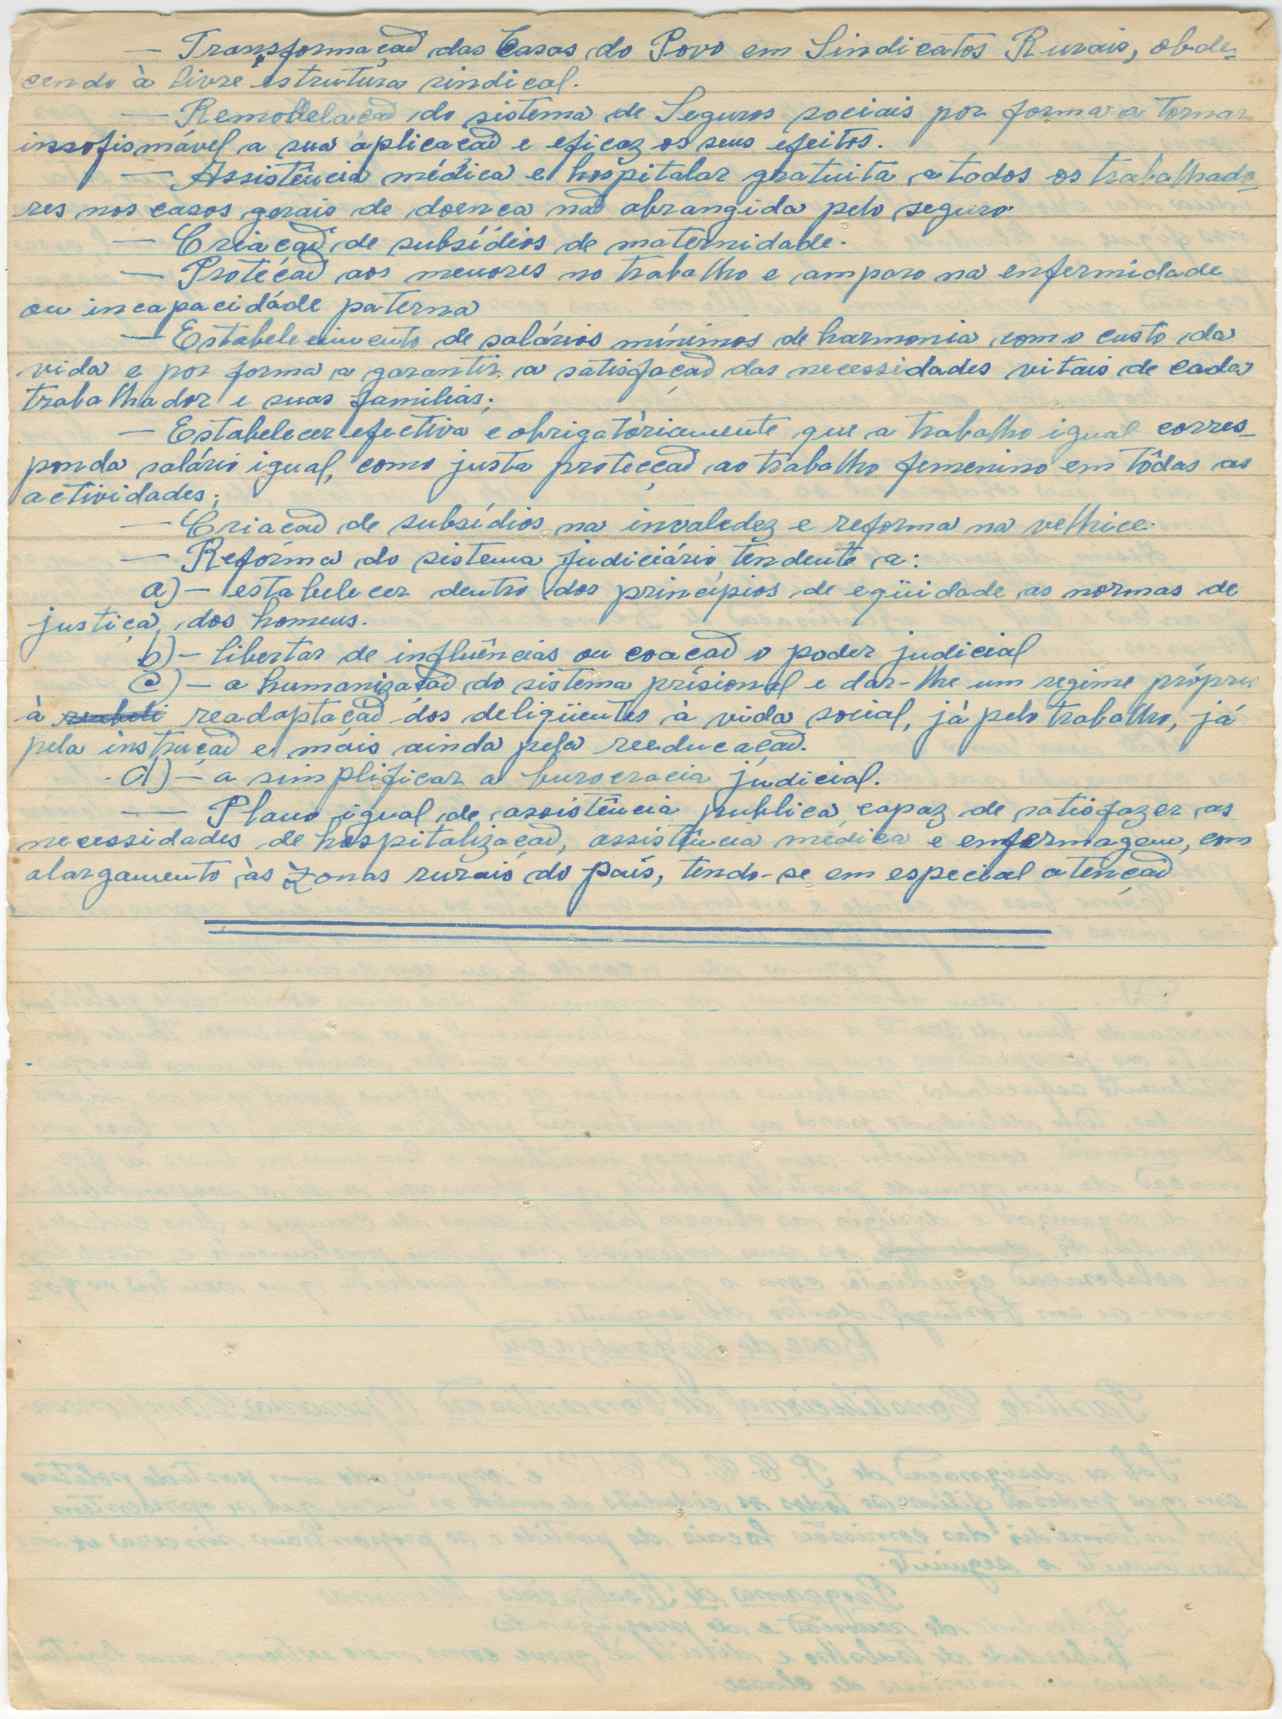 — Transformação das Casas do Povo em Sindicatos Rurais, obde-
cendo à livre estrutura sindical.
— Remodelação do sistema de Seguros sociais por forma a tornar
insofismável a sua aplicação e eficaz os seus efeitos.
— Assistência médica e hospitalar gratuita a todos os trabalhado-
res nos casos gerais de doença não abrangida pelo seguro
— Criação de subsídios de maternidade.
— Proteção aos menores no trabalho e amparo na enfermidade
ou incapacidade paterna
— Estabelecimento de salários mínimos de harmonia com o custo da
vida e por forma a garantir a satisfação das necessidades vitais de cada
trabalhador e suas familias;
— Estabelecer efectiva e obrigatòriamente que a trabalho igual corres-
ponda salário igual, como justa protecção ao trabalho femenino em tôdas as
actividades;
— Criação de subsídios na invaledez e reforma na velhice.
— Reforma do sistema judiciário tendente a:
a) — estabelecer dentro dos princípios de eqüidade as normas de
justiça dos homens.
b) — libertar de influências ou coação o poder judicial
c) — a humanização do sistema prisional e dar-lhe um regime próprio
à readaptação dos deliqüentes à vida social, já pelo trabalho, já
pela instrução e mais ainda pela reeducação.
d) — a simplificar a burocracia judicial.
— Plano igual de assistência publica capaz de satisfazer as
necessidades de hospitalização, assistência médica e enfermagem, com
alargamento às zonas rurais do país, tendo-se em especial atenção